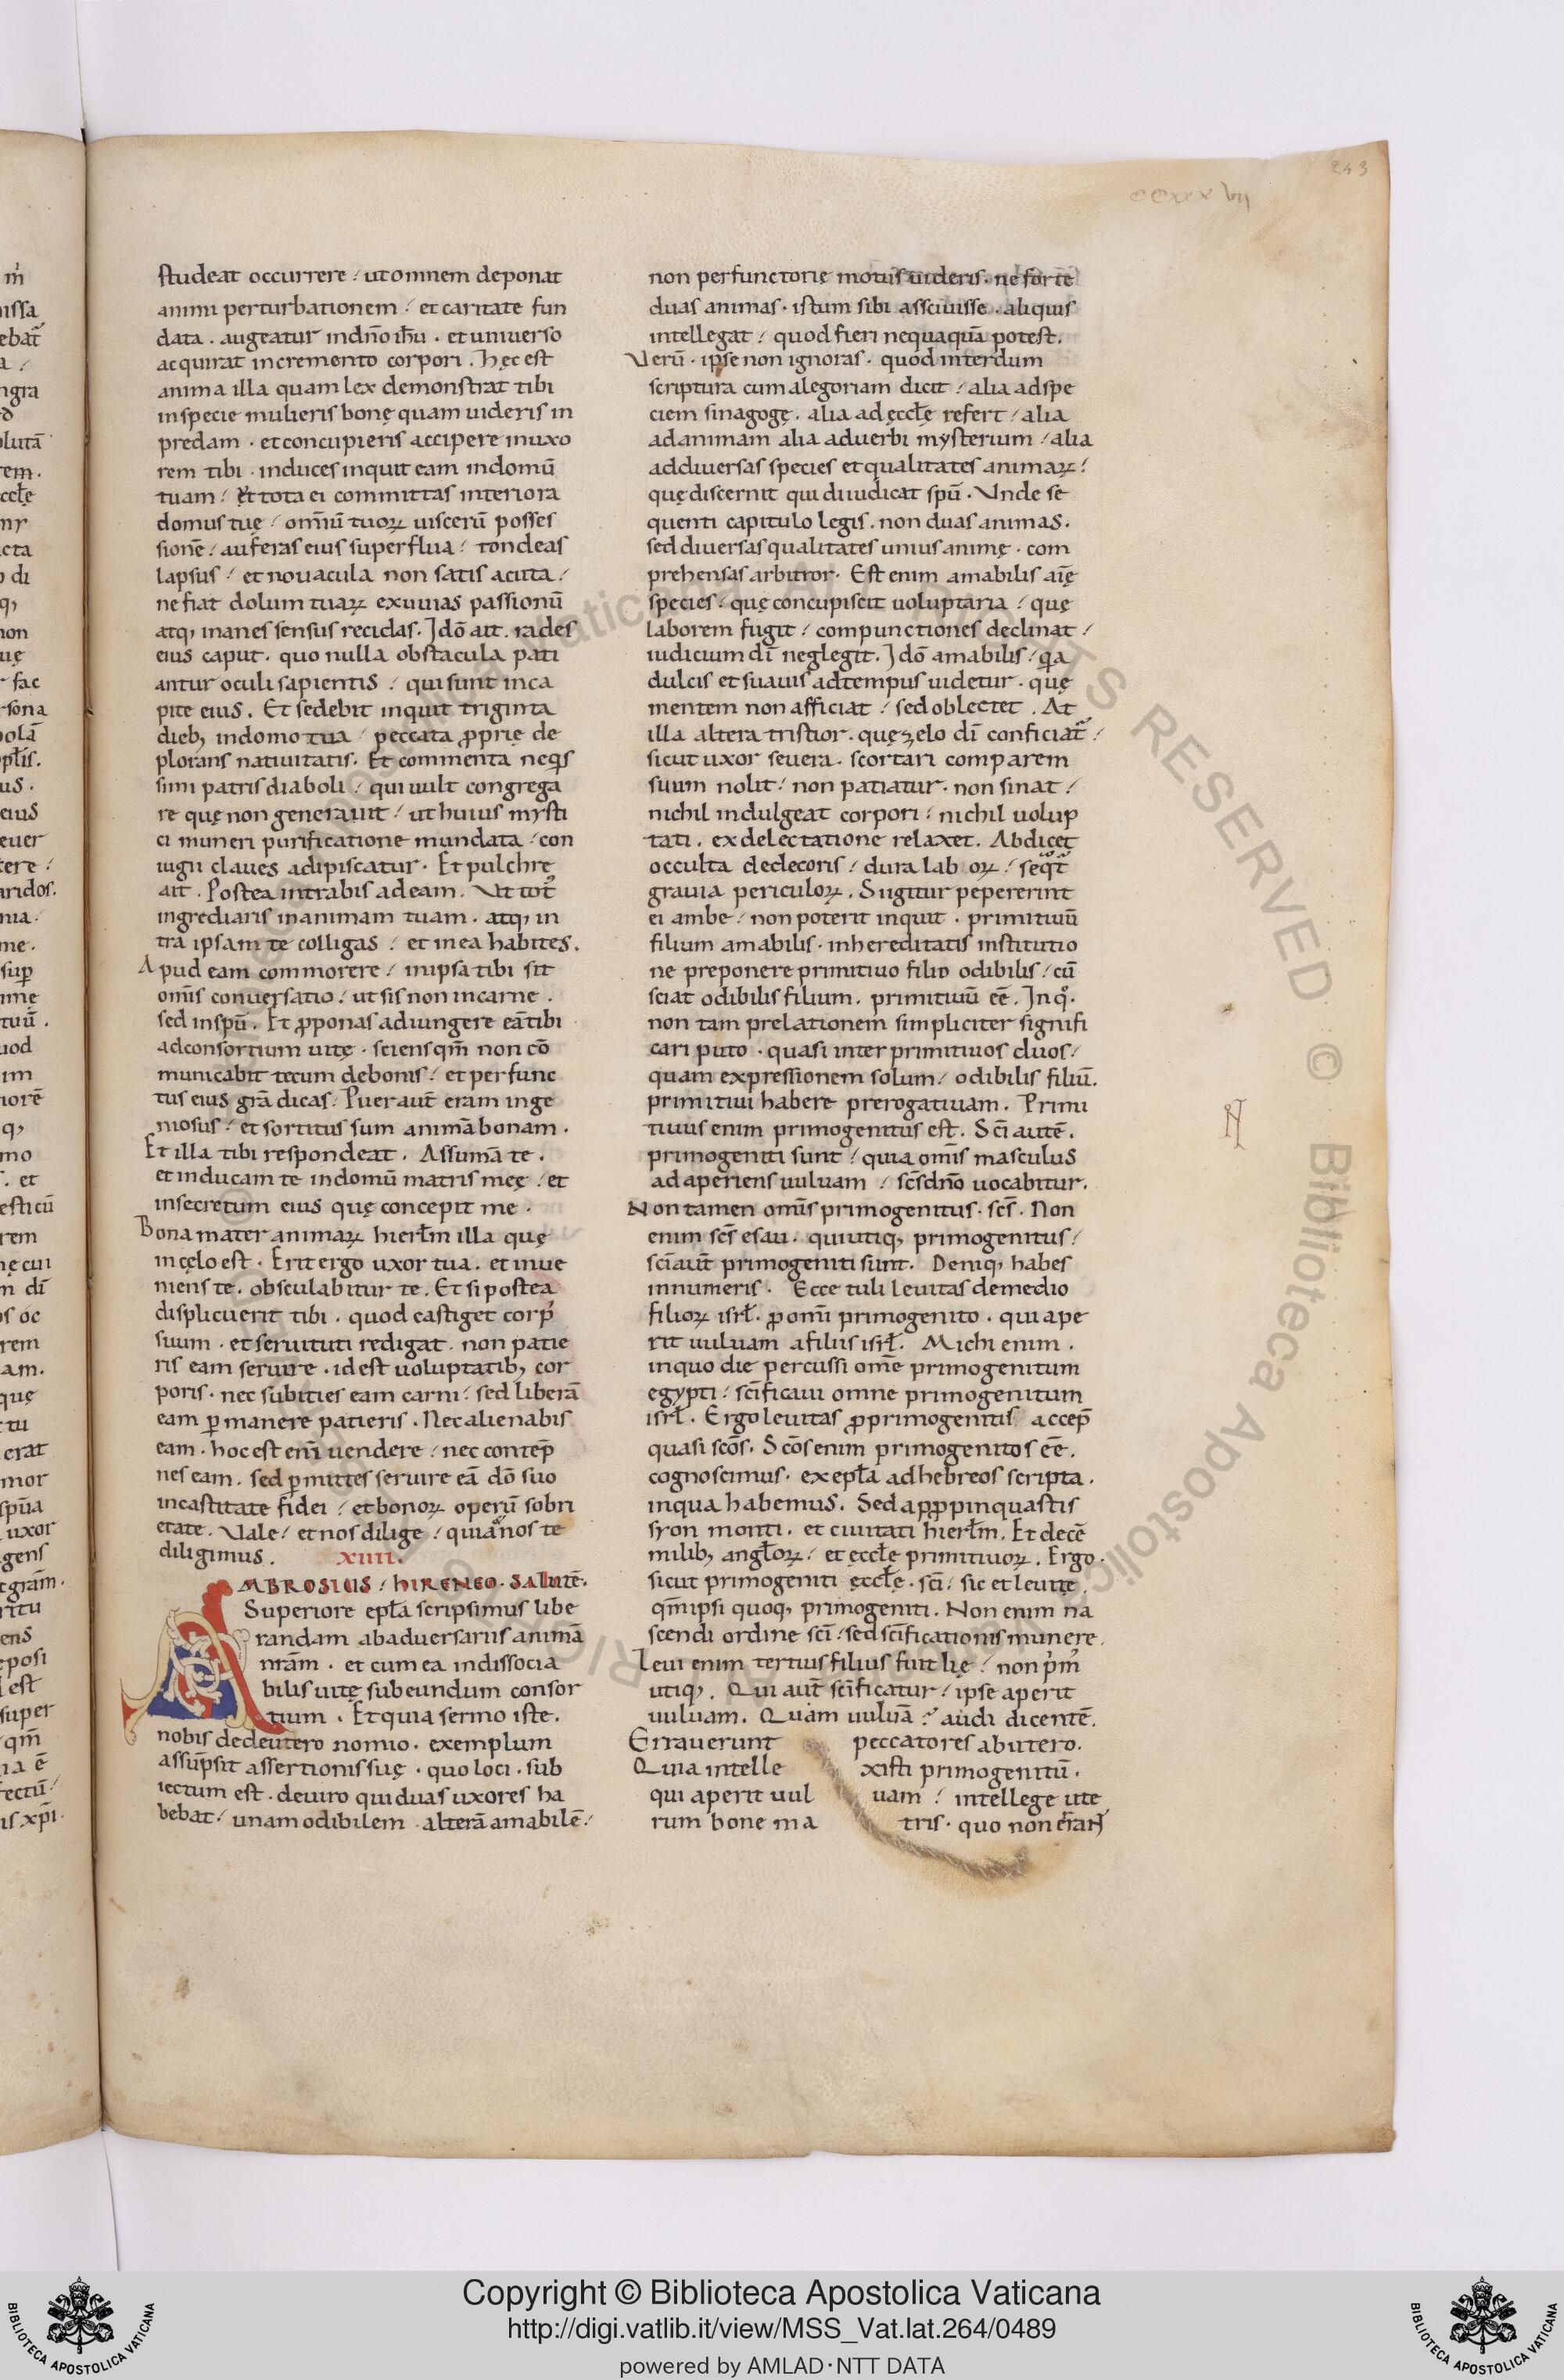 243
ccxxxvii
studeat occurrere / ut omnem deponat
animi perturbationem / et caritate fun
data . augeatur in dño ihũ . et universo
acquirat incremento corpori . Hęc est
anima illa quam lex demonstrat tibi
in specie mulieris bonę quam uideris in
predam . et concupieris accipere in uxo
rem tibi . induces inquit eam in domũ
tuam / Et tota ei committas interiora
domus tuę / omĩũ tuoꝝ uiscerũ posses
sionẽ / auferas eius superflua / tondeas
lapsus / et nouacula non satis acuta /
ne fiat dolum tuaꝝ exuuias passionũ
atq, inanes sensus recidas . Idõ ait . rades
eius caput . quo nulla obstacula pati
antur oculi sapientis / qui sunt in ca
pite eius . Et sedebit inquit triginta
dieb, in domo tua / peccata ꝓprię de
plorans natiuitatis . Et commenta neqs
simi patris diaboli / qui uult congrega
re quę non generauit / ut huius mysti
ci muneri purificatione mundata / con
iugii claues adipiscatur . Et pulchrę
ait . Postea intrabis ad eam . Vt tot᷒
ingrediaris in animam tuam . atq, in
tra ipsam te colligas / et in ea habites .
Apud eam commorere / in ipsa tibi sit
omĩs conuersatio / ut sis non in carne .
sed in spũ . Et ꝓponas adiungere eã tibi
ad consortium uitę . sciens qm̃ non cõ
municabit tecum de bonis / et perfunc
tus eius grã dicas / Puer aut̃ eram inge
niosus / et sortitus sum animã bonam .
Et illa tibi respondeat . Assumã te .
et inducam te in domũ matris meę / et
in secretum eius quę concepit me .
Bona mater animaꝝ hierłm illa quę
in cęlo est . Erit ergo uxor tua . et inue
niens te . obsculabitur te . Et si postea
displicuerit tibi . quod castiget corp᷒
suum . et seruituti redigat . non patie
ris eam seruire . id est uoluptatib, cor
poris . nec subities eam carni / sed liberã
eam ꝑmanere patieris . Nec alienabis
eam . hoc est enĩ uendere / nec contep̃
nes eam . sed ꝑmittes seruire eã dõ suo
in castitate fidei / et bonoꝝ operũ sobri
etate . Vale / et nos dilige / quia nos te
diligimus . xiiii .
AMBROSIUS / HIRENEO . SALUtẽ .
Superiore epła scripsimus libe
randam ab aduersariis animã
nr̃am . et cum ea indissocia
bilis uitę subeundum consor
tium . Et quia sermo iste .
nobis de deutero nomio . exemplum
assũpsit assertionis suę . quo loci . sub
iectum est . de uiro qui duas uxores ha
bebat / unam odibilem . alterã amabilẽ /
non perfunctorię motus uideris . ne forte
duas animas . istum sibi assciuisse . aliquis
intellegat / quod fieri nequaquã potest .
Verũ . ipse non ignoras . quod interdum
scriptura cum alegoriam dicit / alia ad spe
ciem sinagogę . alia ad ęccłę refert / alia
ad animam alia ad uerbi mysterium / alia
ad diuersas species et qualitates animaꝝ /
quę discernit qui diiudicat spũ . Vnde se
quenti capitulo legis . non duas animas .
sed diuersas qualitates unius animę . com
prehensas arbitror . Est enim amabilis aĩę
species / quę concupiscit uoluptaria / quę
laborem fugit / compunctiones declinat /
iudicium dĩ neglegit . Idõ amabilis / qa
dulcis et suauis ad tempus uidetur . quę
mentem non afficiat / sed oblectet . At
illa altera tristior . quę zelo dĩ conficiat᷒ /
sicut uxor seuera . scortari comparem
suum nolit / non patiatur . non sinat /
nichil indulgeat corpori / nichil uolup
tati . ex delectatione relaxet . Abdicet
occulta dedecoris / dura laboꝝ / seqat᷒
grauia periculoꝝ . Si igitur pepererint
ei ambe / non poterit inquit . primitiuũ
filium amabilis . in hereditatis institutio
ne preponere primitiuo filio odibilis / cũ
sciat odibilis filium . primitiuũ eẽ . In qº .
non tam prelationem simpliciter signifi
cari puto . quasi inter primitiuos duos /
quam expressionem solum / odibilis filiũ .
primitiui habere prerogatiuam . Primi
tiuus enim primogenitus est . Scĩ autẽ .
primogeniti sunt / quia omĩs masculus
adaperiens uuluam / scs̃ dño uocabitur .
Non tamen omĩs primogenitus . scs̃ . Non
enim scs̃ esau . qui utiq, primogenitus /
scĩ aut̃ primogeniti sunt . Deniq, habes
in numeris . Ecce tuli leuitas de medio
filioꝝ isrł . ꝓ omĩ primogenito . qui ape
rit uuluam a filiis isrł . Michi enim .
in quo die percussi omẽ primogenitum
egypti / scĩficaui omne primogenitum
isrł . Ergo leuitas ꝓ primogenitis accep̃
quasi scõs . Scõs enim primogenitos eẽ .
cognoscimus . ex epła ad hebreos scripta .
in qua habemus . Sed apꝓpinquastis
syon monti . et ciuitati hierłm . Et decẽ
milib, angłoꝝ / et ęccłę primitiuoꝝ . Ergo .
sicut primogeniti ęccłę . scĩ / sic et leuitę .
qm̃ ipsi quoq, primogeniti . Non enim na
scendi ordine scĩ / sed scĩficationis munere .
Leui enim tertius filius fuit lię / non pⁱm᷒
utiq, . Qui aut̃ scĩficatur / ipse aperit
uuluam . Quam uuluã ? audi dicentẽ .
Errauerunt peccatores ab utero .
Quia intellexisti primogenitũ .
qui aperit uuluam / intellege ute
rum bone matris . quo non erant
m᷒
nissa
ebat᷒
ngra
lutã
rem .
ccłę
cta
di
non
uę
fac
rsona
us .
eius
euer
cere /
aridos .
nia .
me .
tuũ .
uod
im
iorẽ
q,
mo
et
esti cũ
rem
n dĩ
os oc
rem
am .
que
tu
erat
mor
spũa
uxor
gens
t grãm .
ritu
ens
eposi
est
super
qm̃
fectũ /
is xp̃i .
N
© Biblioteca Apostolica Vaticana ALL RIGHTS RESERVED
Copyright © Biblioteca Apostolica Vaticana
http://digi.vatlib.it/view/MSS_Vat.lat.264/0489
powered by AMLAD·NTT DATA
BIBLIOTECA APOSTOLICA VATICANA
BIBLIOTECA APOSTOLICA VATICANA